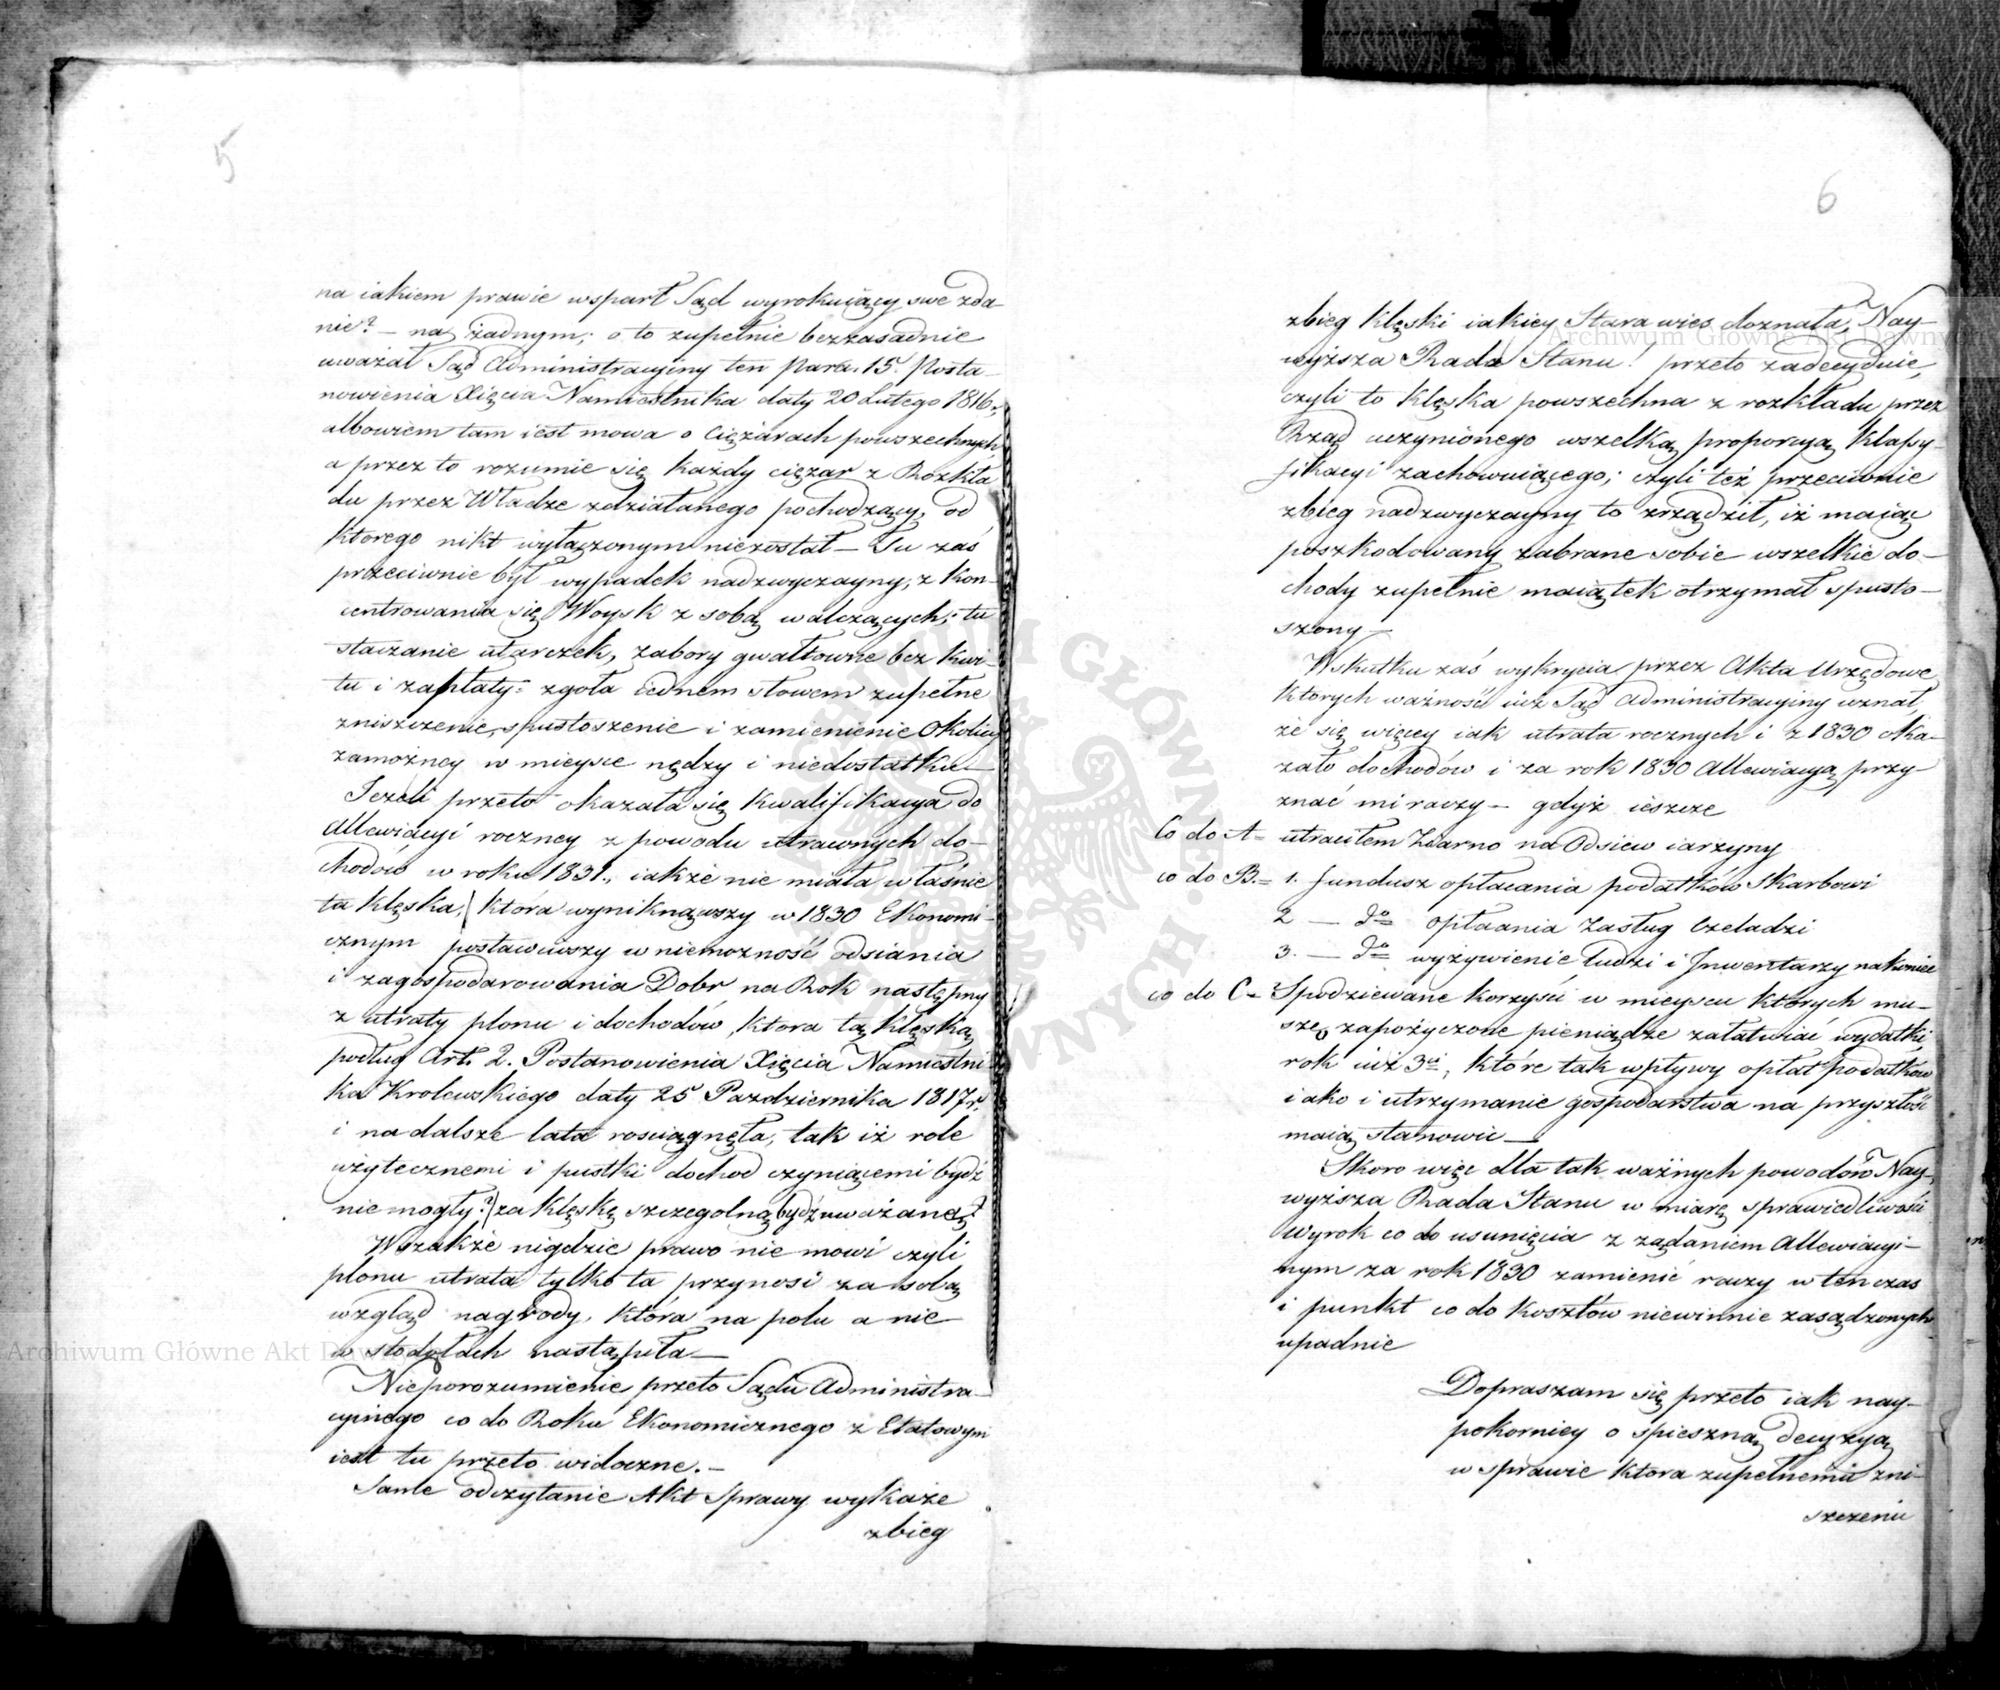 5
na iakiem prawie wsparł Sąd wyrokuiący swe zda-
nie? – na żadnym; o to zupełnie bezzasadnie
uważał Sąd Administracyiny ten Para. 15. Posta-
nowienia Xięcia Namiestnika daty 20 Lutego 1816 r.
albowiem tam iest mowa o Ciężarach powszechnych
a przez to rozumie się każdy ciężar z Rozkła
du przez Władze zdziałanego pochodzący, od
ktorego nikt wyłączonym niezostał – Tu zaś
przeciwnie był wypadek nadzwyczayny, z kon-
centrowania się Woysk z sobą walczących; tu
staczanie utarczek, zabory gwałtowne bez kwi-
tu i zapłaty: zgoła iednem słowem zupełne
zniszczenie, spustoszenie i zamienienie Okolicy
zamożney w mieysce nędzy i niedostatku –
Jeżeli przeto okazała się kwalifikacya do
Allewiacyi roczney z powodu utraconych do-
chodow w roku 1831., iakże nie miała właśnie
ta klęska, ktora wyniknąwszy w 1830 Ekonomi-
cznym postawiwszy w niemożność odsiania
i zagospodarowania Dobr na Rok następny
z utraty plonu i dochodów, ktora tą klęską
podług Art. 2. Postanowienia Xięcia Namiestni
ka Krolewskiego daty 25 Pazdziernika 1817 r.
i na dalsze lata rosciągnęła, tak iż role
użytecznemi i pustki dochod czyniącemi bydź
nie mogły? za klęskę szczegolną bydź uważaną?
Wszakże nigdzie prawo nie mowi czyli
plonu utrata tylko ta przynosi za sobą
wzgląd nagrody, ktora na polu a nie
w stodołach nastąpiła –
Nieporozumienie przeto Sądu Administra-
cyinego co do Roku Ekonomicznego z Etatowym
iest tu przeto widoczne. –
Samo odczytanie Akt Sprawy wykaże
zbieg
6
zbieg klęski iakiey Stara wies doznała, Nay-
wyższa Rada Stanu! przeto zadecyduie,
czyli to klęska powszechna z rozkładu przez
Rząd uczynionego wszelką proporcyą klassy-
fikacyi zachowuiącego; czyli też przeciwnie
zbieg nadzwyczayny to zrządził, iż maiąc
poszkodowany zabrane sobie wszelkie do-
chody zupełnie maiątek otrzymał spusto-
szony –
Wskutku zaś wykrycia przez Akta Urzędowe
ktorych ważność iuż Sąd Administracyiny uznał,
że się więcey iak utrata rocznych i z 1830 oka-
zało dochodów i za rok 1830 Allewiacyą przy-
znać mi raczy – gdyż ieszcze
Co do A= utraciłem Ziarno na Odsiew iarzyny
co do B.= 1. fundusz opłacania podatków Skarbowi
2 — do opłacania Zasług Czeladzi
3. — do wyżywienie Ludzi i Inwentarzy nakoniec
co do C= Spodziewane korzyści w mieyscu których mu-
szę zapożyczone pieniądze załatwiać wydatki
rok iuż 3ci, które tak wpływy opłat podatków
iako i utrzymanie gospodarstwa na przyszłość
maią stanowić –
Skoro więc dla tak ważnych powodow Nay-
wyższa Rada Stanu w miarę sprawiedliwości
Wyrok co do usunięcia z żądaniem Allewiacyi-
nym za rok 1830 zamienić raczy w ten czas
i punkt co do kosztów niewinnie zasądzonych
upadnie
Dopraszam się przeto iak nay-
pokorniey o spieszną decyzyą
w sprawie ktora zupełnemu zni-
szczeniu
Archiwum Główne Akt Dawnych
Archiwum Główne Akt Dawnych